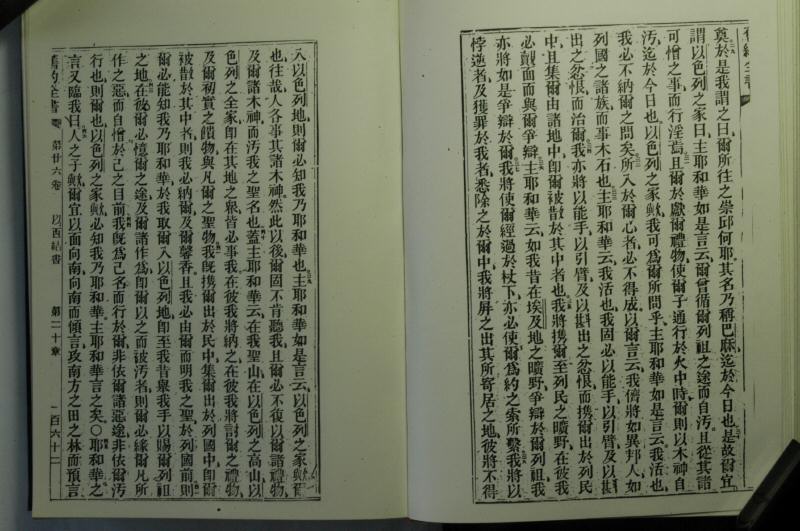 舊約全書
奠於是我謂之曰爾所往之崇邱何耶其名乃稱巴麻迄於今日也是故爾宜
謂以色列之家曰主耶和華如是言云爾曾循爾列祖之途而自汚且從其諸
可憎之事而行淫焉且爾於獻爾禮物使爾子通行於火中時爾則以木神自
汚迄於今日也以色列之家歟我可爲爾所問乎主耶和華如是言云我活也
我必不納爾之問矣所入於爾心者必不得成以爾言云我儕將如異邦人如
列國之諸族而事木石也主耶和華云我活也我固必以能手以引臂及以斟
出之忿恨而治爾我亦將以能手以引臂及以斟出之忿恨而携爾出於列民
中且集爾由諸地中即爾被散於其中者也我將携爾至列民之曠野在彼我
必覿面而與爾爭辯主耶和華云如我昔在埃及地之曠野爭辯於爾列祖我
亦將如是爭辯於爾我將使爾經過於杖下亦必使爾爲約之索所繫我將以
悖逆者及獲罪於我者悉除之於爾中我將屏之出其所寄居之地彼將不得
入以色列地則爾必知我乃耶和華也主耶和華如是言云以色列之家歟爾
也往哉人各事其諸木神然此以後爾固不肯聽我且爾必不復以爾諸禮物
及爾諸木神而汚我之聖名也蓋主耶和華云在我聖山在以色列之高山以
色列之全家即在其地之衆皆必事我在彼我將納之在彼我將討爾之禮物
及爾初實之饋物與凡爾之聖物我旣携爾出於民中集爾出於列國中即爾
被散於其中者則我必納爾及爾馨香且我必由爾而明我之聖於列國前則
爾必能知我乃耶和華於我取爾入以色列地即至我昔舉我手以賜爾列祖
之地在彼爾必憶爾之途及爾諸作爲即爾以之而被汚者則爾必緣爾凡所
作之惡而自憎於己之目前我旣爲己名而行於爾非依爾諸惡途非依爾汚
行也則爾也以色列之家歟必知我乃耶和華主耶和華言之矣〇耶和華之
言又臨我曰人之子歟爾宜以面向南向南而傾言攻南方之田之林而預言
舊約全書 第廿六卷 以西結書 第二十章 一百六十二